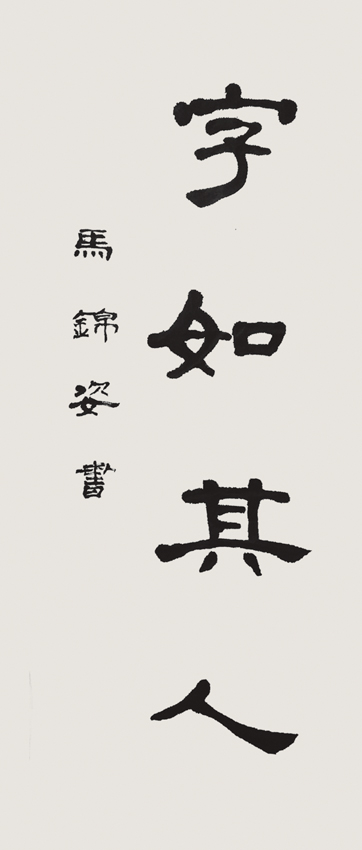 字如其人
馬錦姿書